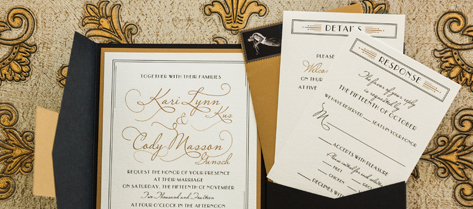 TOGETHER WITH THEIR FAMILIES
Kari Lynn
Kus
&
Cody Masson
Wunsch
REQUEST THE HONOR OF YOUR PRESENCE
AT THEIR MARRIAGE
ON SATURDAY, THE FIFTEENTH OF NOVEMBER
Two Thousand and Fourteen
AT FOUR O'CLOCK IN THE AFTERNOON
DETAILS
PLEASE
Welco
ON THUR
AT FIVE
RESPONSE
The favor of your reply
is requested by
THE FIFTEENTH OF OCTOBER
WE HAVE RESERVED SEATS IN YOUR HONOR
M
ACCEPTS WITH PLEASURE
DECLINES WITH